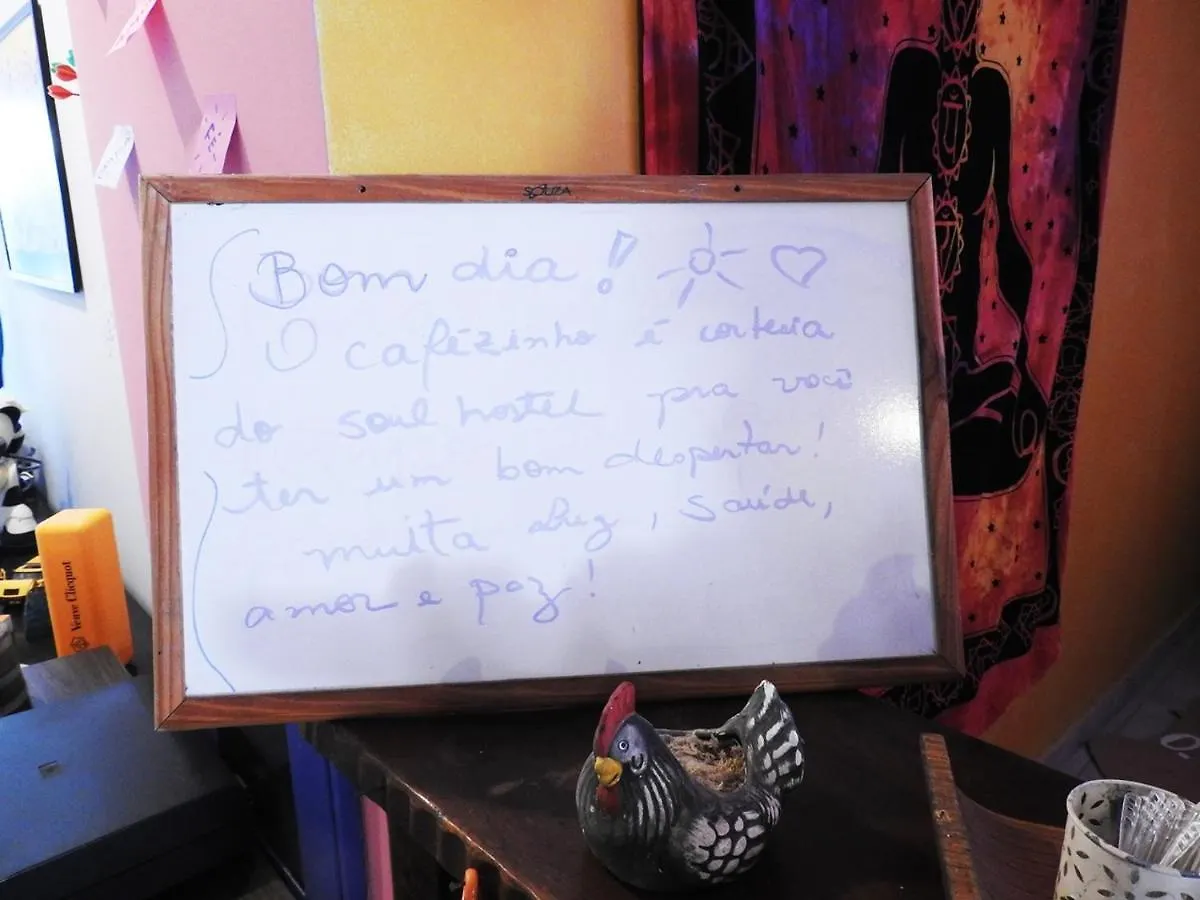 SOUZA
Bom dia!
O cafézinho é cortesia
do soul hostel pra você
ter um bom despertar!
muita luz, saúde,
amor e paz!
Veuve Clicquot